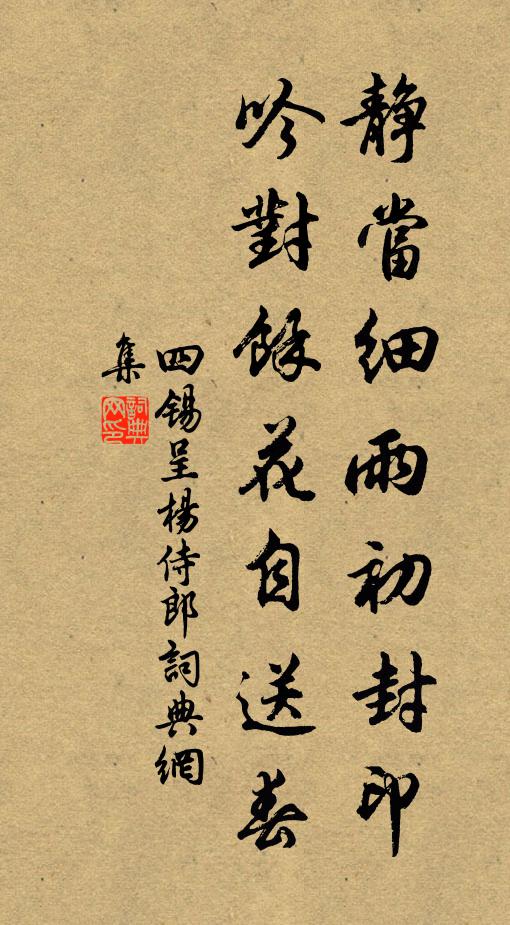 靜當細雨初封印
吟對餘花自送春
四錫呈楊侍郎詞典網
集
詞典
网印